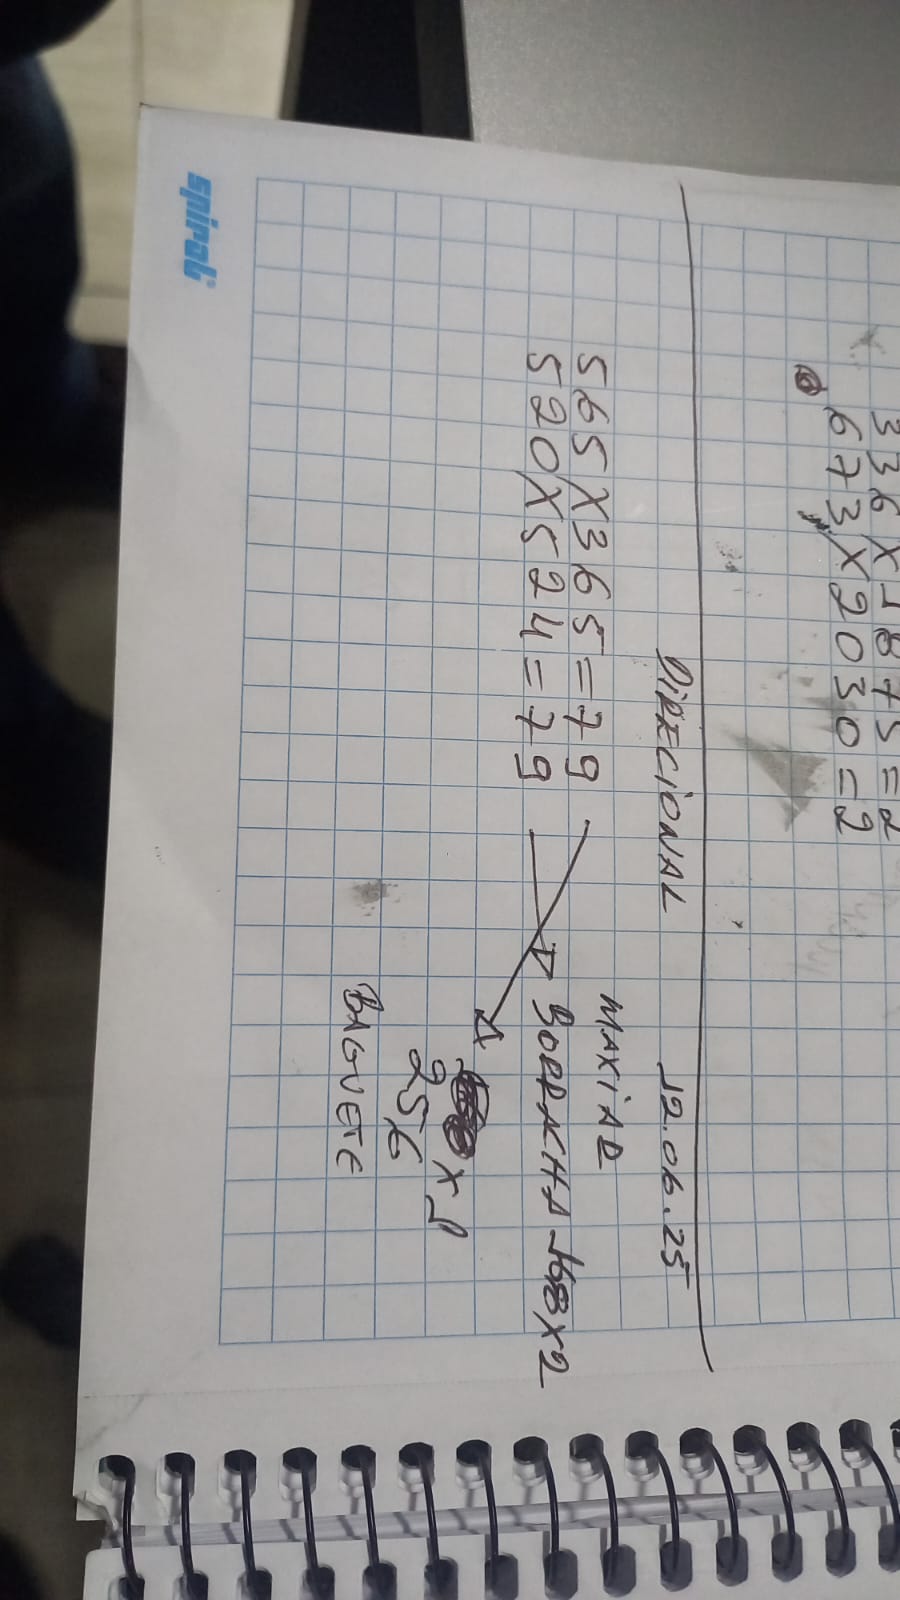 336 X 1875 = 2
673 X 2030 = 2
DIRECIONAL 12.06.25
MAXIAR
565 X 365 = 79
520 X 524 = 79
BORRACHA 168 X 2
X 1
256
BAGUETE
spiral